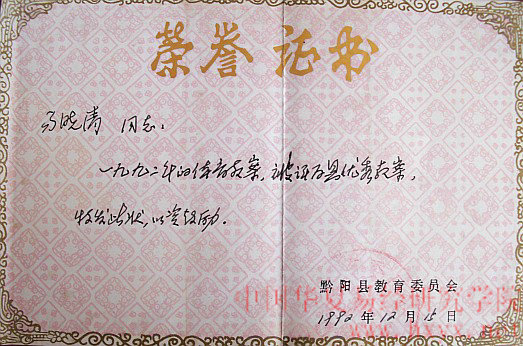 荣誉证书
马晓清 同志：
一九九二年的体育教案，被评为县优秀教案，
特发此状，以资鼓励。
黔阳县教育委员会
中国华夏易经研究学院
1992年12月15日